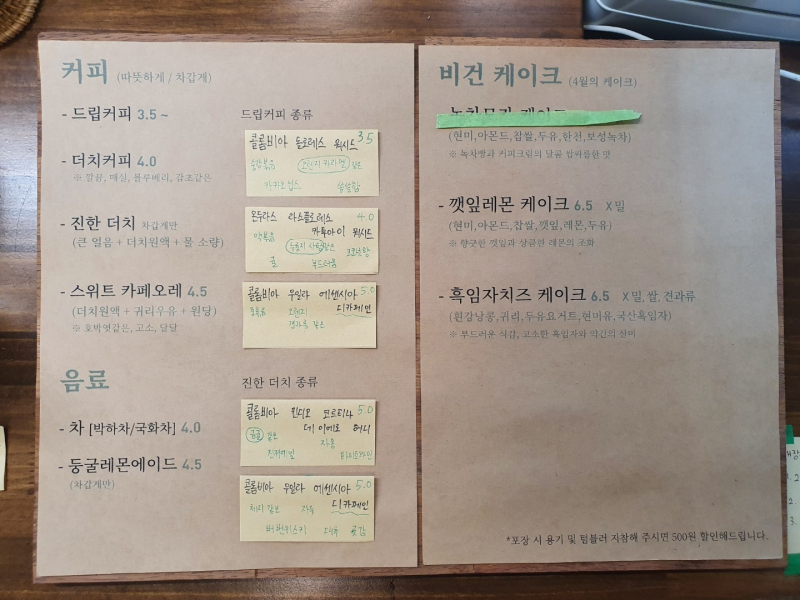 커피 (따뜻하게 / 차갑게)
- 드립커피 3.5 ~
- 더치커피 4.0
※ 깔끔, 매실, 블루베리, 감초같은
- 진한 더치 차갑게만
(큰 얼음 + 더치원액 + 물 소량)
- 스위트 카페오레 4.5
(더치원액 + 귀리우유 + 원당)
※ 호박엿같은, 고소, 달달
음료
- 차 [박하차/국화차] 4.0
- 둥굴레몬에이드 4.5
(차갑게만)
드립커피 종류
콜롬비아 돌로레스 워시드 3.5
중강볶음 오렌지카라멜 같은
쌉쌀함
온두라스 라스플로레스 4.0
카투아이 워시드
약볶음
귤 부드러움
콜롬비아 우일라 에센시아 5.0
디카페인
오렌지
진한 더치 종류
콜롬비아 윈디오 코르티나 5.0
허니
자몽
콜롬비아 우일라 에센시아 5.0
디카페인
자두
곶감
비건 케이크 (4월의 케이크)
(현미,아몬드,찹쌀,두유,한천,보성녹차)
※ 녹차빵과 커피크림의 달콤 쌉싸름한 맛
- 깻잎레몬 케이크 6.5 X 밀
(현미,아몬드,찹쌀,깻잎,레몬,두유)
※ 향긋한 깻잎과 상큼한 레몬의 조화
- 흑임자치즈 케이크 6.5 X 밀, 쌀, 견과류
(흰강낭콩,귀리,두유요거트,현미유,국산흑임자)
※ 부드러운 식감, 고소한 흑임자와 약간의 산미
*포장 시 용기 및 텀블러 지참해 주시면 500원 할인해드립니다.